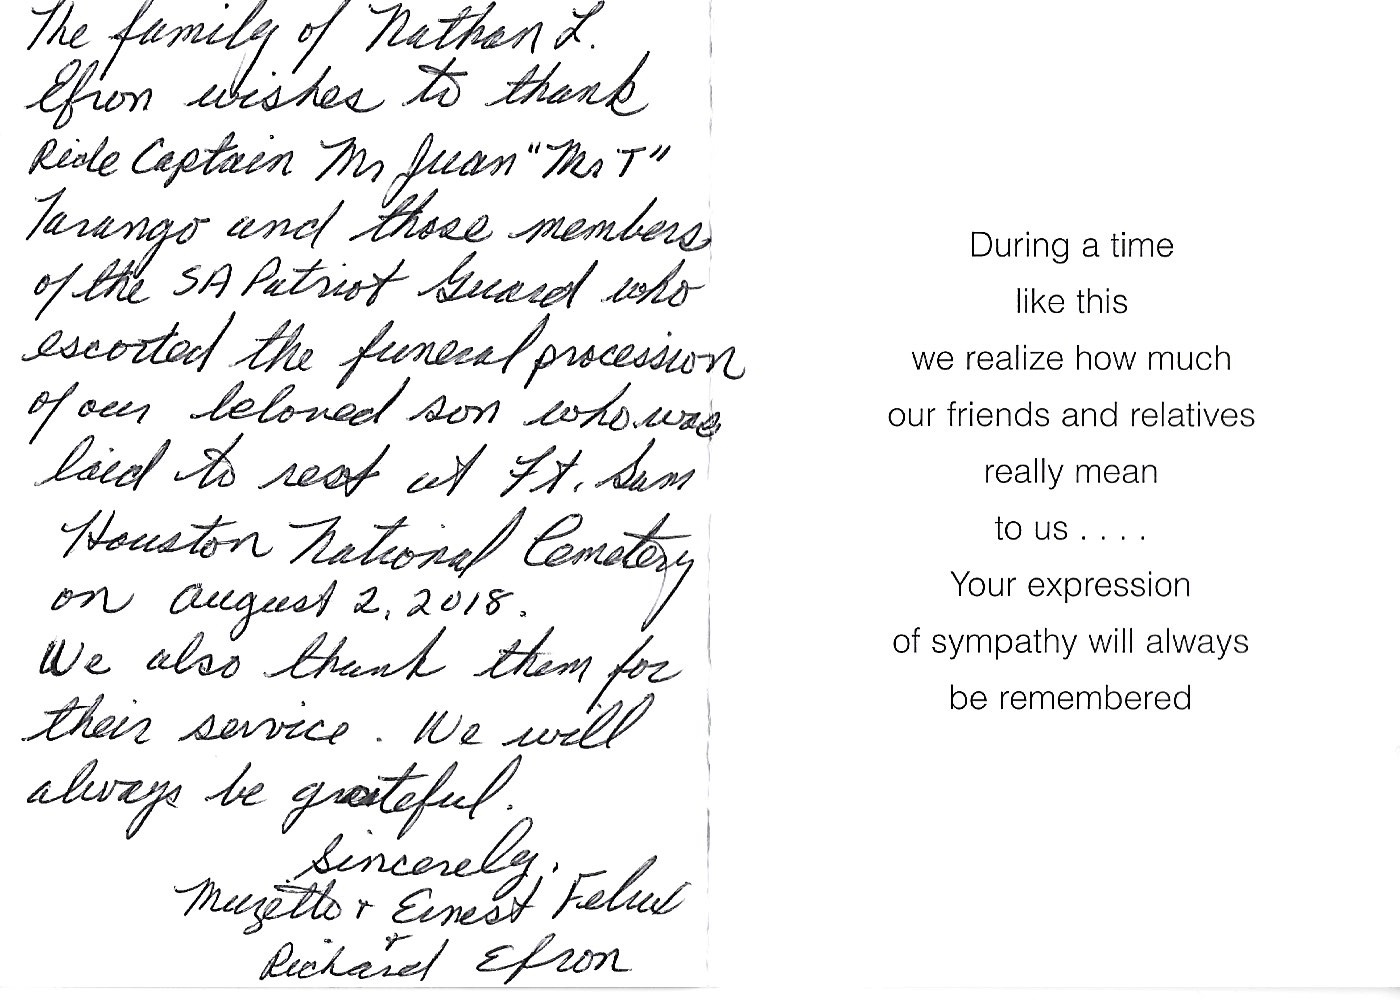 The family of Nathan L.
Efron wishes to thank
Ride Captain Mr Juan "Mr T"
Tarango and those members
of the SA Patriot Guard who
escorted the funeral procession
of our beloved son who was
laid to rest at Ft. Sam
Houston National Cemetery
on August 2, 2018.
We also thank them for
their service. We will
always be grateful.
Sincerely,
+ Ernest
+
Richard Efron
During a time
like this
we realize how much
our friends and relatives
really mean
to us . . . .
Your expression
of sympathy will always
be remembered